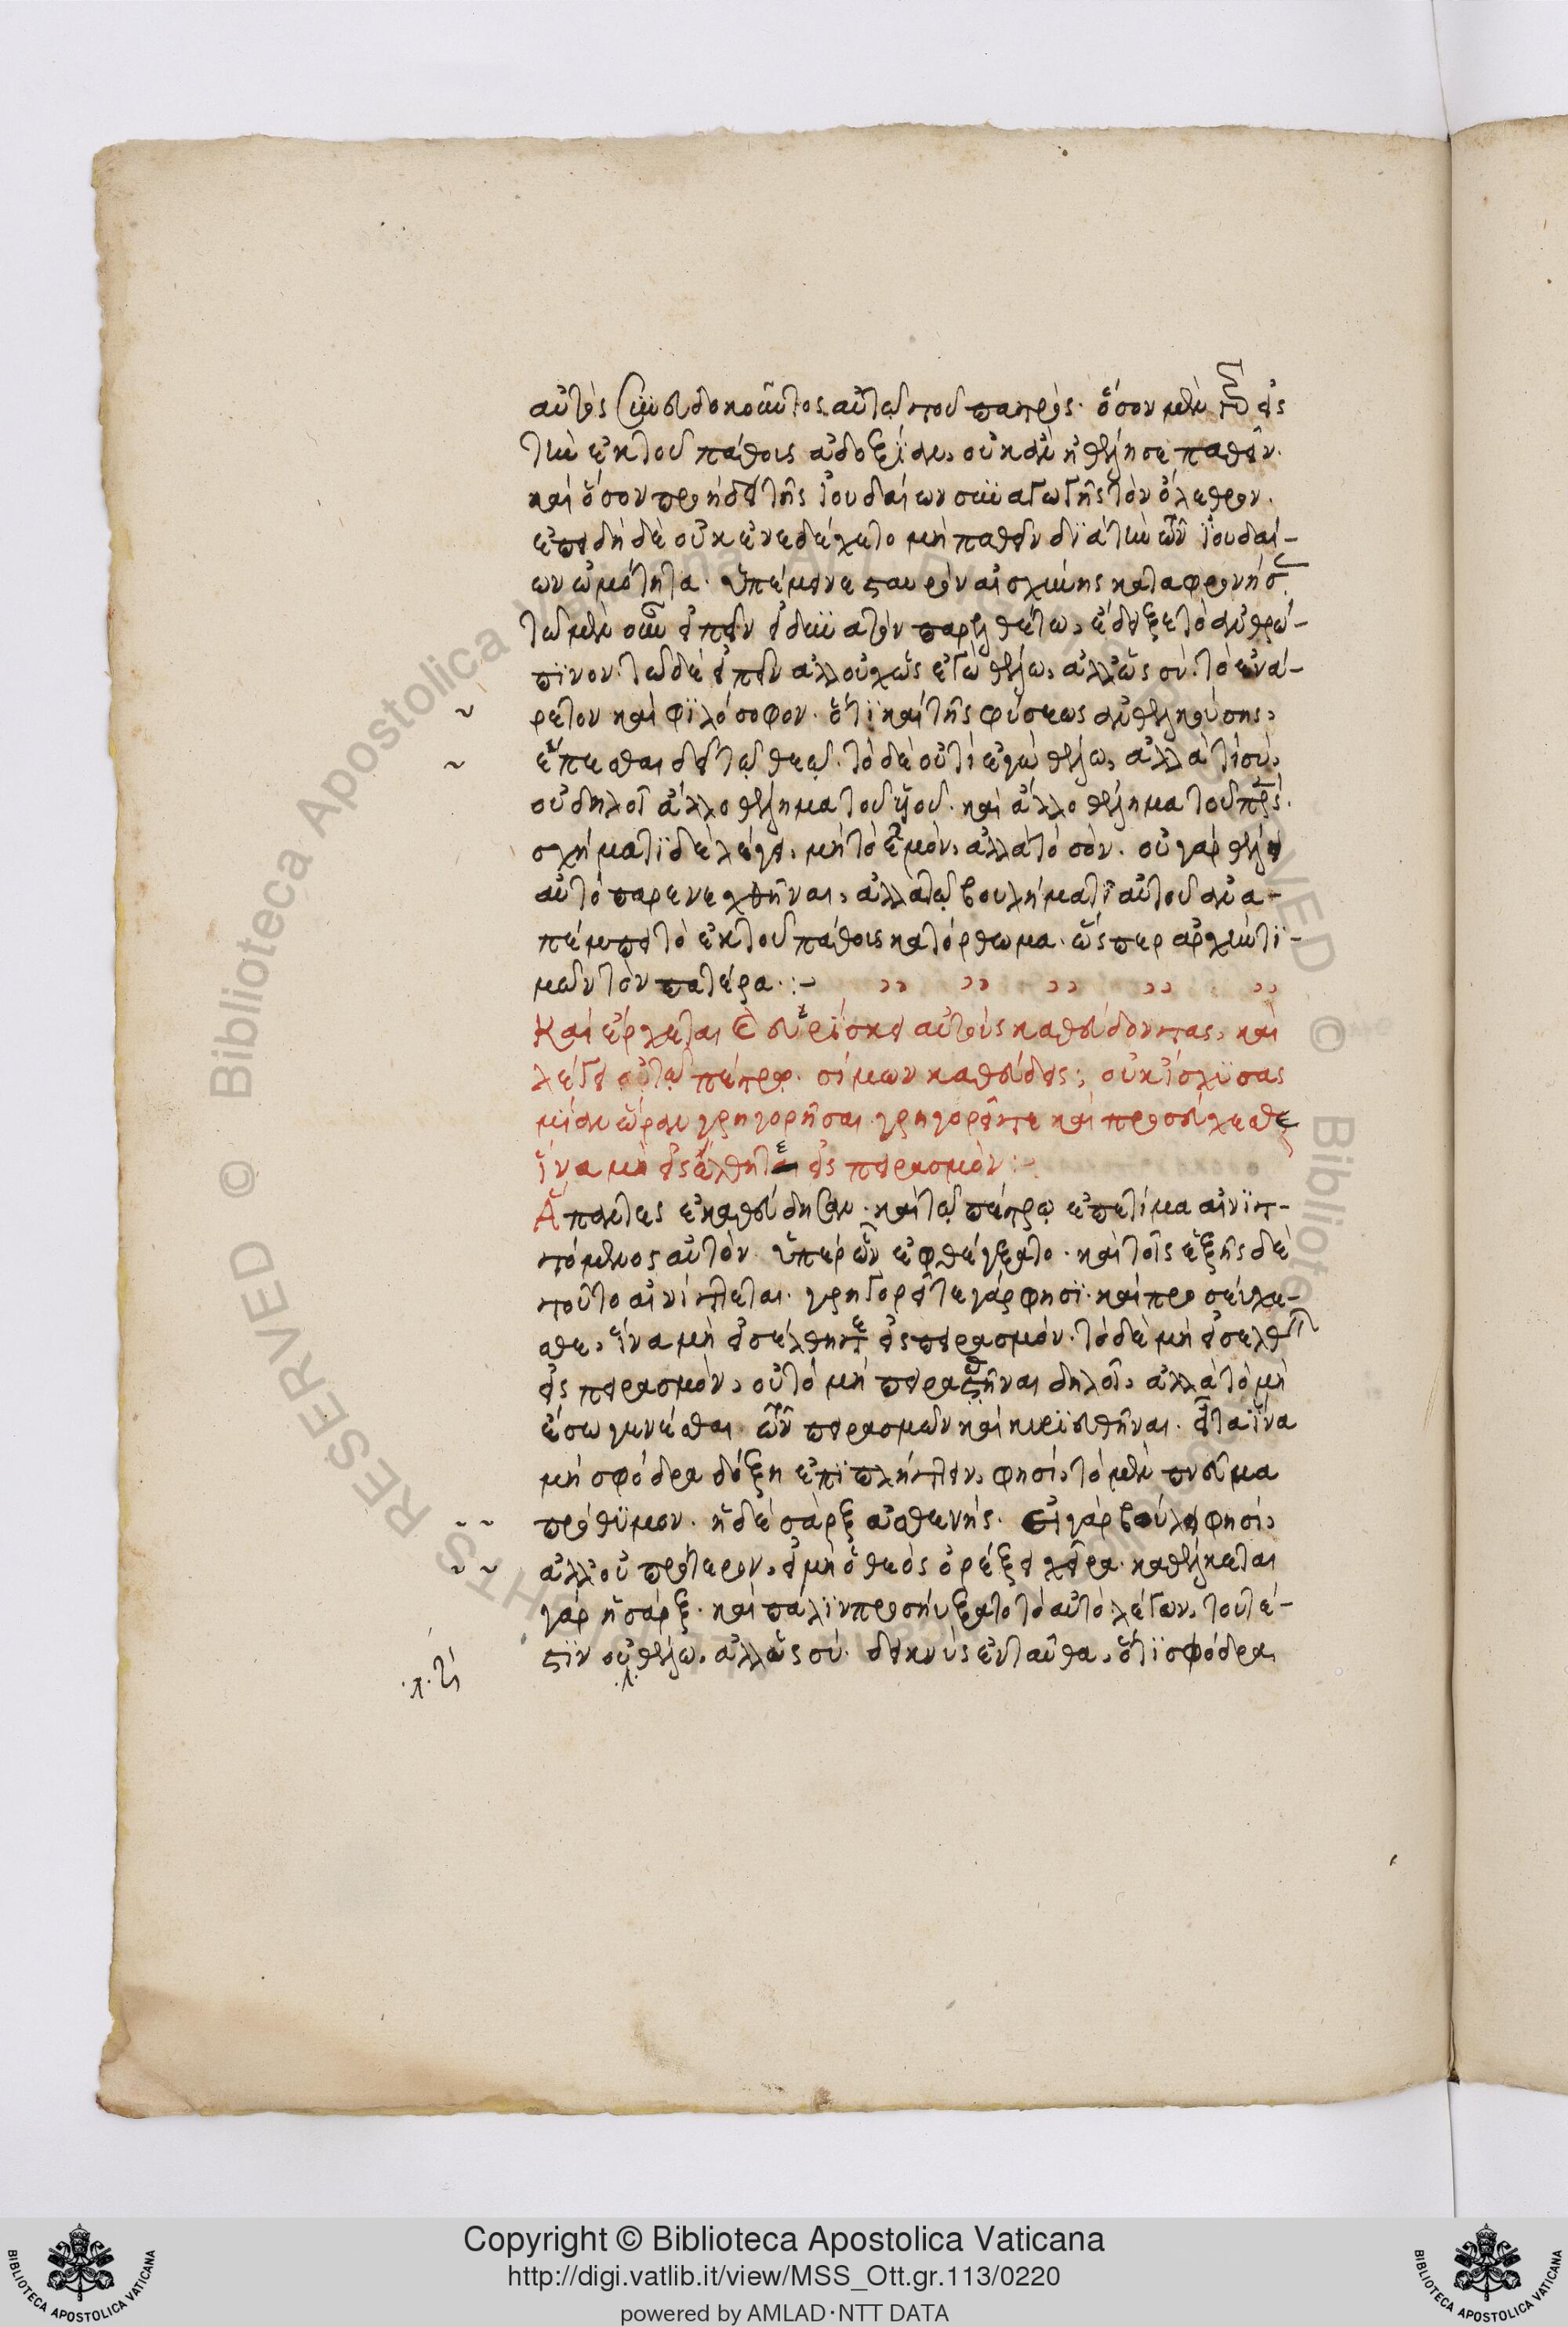 αὐτὸς συνευδοκοῦντος αὐτῷ τοῦ πατρός. ὅσον μὲν πρὸς
τὴν ἐκ τοῦ πάθους ἀδοξίαν, οὐκ ἂν ἠθέλησε παθεῖν.
καὶ ὅσον πρὸς ᾔδει τῆς ἰουδαίων συναγωγῆς τὸν ὄλεθρον.
ἐπειδὴ δὲ οὐκ ἐνεδέχετο μὴ παθεῖν διὰ τὴν τῶν ἰουδαί-
ων ὠμότητα. ὑπέμεινε σταυρὸν αἰσχύνης καταφρονήσας.
τῷ μὲν οὖν εἰπεῖν εἰ δυνατὸν παρελθέτω, ἔδειξε τὸ ἀνθρώ-
πινον. τῷ δὲ εἰπεῖν ἀλλ' οὐχ ὡς ἐγὼ θέλω, ἀλλ' ὡς σύ. τὸ ἐνά-
ρετον καὶ φιλόσοφον. ὅτι καὶ τῆς φύσεως ἀνθελκούσης,
ἕπεσθαι δεῖ τῷ θεῷ. τὸ δὲ οὐ τί ἐγὼ θέλω, ἀλλὰ τί σύ,
οὐ δηλοῖ ἄλλο θέλημα τοῦ υἱοῦ. καὶ ἄλλο θέλημα τοῦ πρς.
σχήματι δὲ λέγει, μὴ τὸ ἐμὸν, ἀλλὰ τὸ σόν. οὐ γὰρ θέλει
αὐτὸ παρενεχθῆναι, ἀλλὰ τῷ βουλήματι αὐτοῦ ἀνα-
πέμπει τὸ ἐκ τοῦ πάθους κατόρθωμα. ὥσπερ ἀρχὴν τι-
μῶν τὸν πατέρα. :-
Καὶ ἔρχεται καὶ εὑρίσκει αὐτοὺς καθεύδοντας, καὶ
λέγει αὐτῷ πέτρῳ. σίμων καθεύδεις; οὐκ ἴσχυσας
μίαν ὥραν γρηγορῆσαι. γρηγορεῖτε καὶ προσεύχεσθε
ἵνα μὴ εἰσέλθητε εἰς πειρασμόν :-
Ἅπαντες ἐκαθεύδησαν. καὶ τῷ πέτρῳ ἐπετίμα αἰνιτ-
τόμενος αὐτὸν. ὑπὲρ ὧν ἐφθέγξατο. καὶ τοῖς ἑξῆς δὲ
τοῦτο αἰνίττεται. γρηγορεῖτε γάρ φησι. καὶ προσεύχε-
σθε, ἵνα μὴ εἰσέλθητε εἰς πειρασμόν. τὸ δὲ μὴ εἰσελθεῖν
εἰς πειρασμὸν, οὐ τὸ μὴ πειρασθῆναι δηλοῖ, ἀλλὰ τὸ μὴ
ἔσω γενέσθαι τῶν πειρασμῶν καὶ κυριευθῆναι. εἶτα ἵνα
μὴ σφόδρα δόξῃ ἐπιπλήττειν, φησὶ, τὸ μὲν πνεῦμα
πρόθυμον. ἡ δὲ σὰρξ ἀσθενής. Εἰ γὰρ βούλει φησὶ,
ἀλλ' οὐ πρότερον, εἰ μὴ ὁ θεὸς ὀρέξει χεῖρα. καθέλκεται
γὰρ ἡ σάρξ. καὶ πάλιν προσηύξατο τὸ αὐτὸ λέγων. τουτέ-
στιν οὐ θέλω, ἀλλ' ὡς σύ. δεικνὺς ἐνταῦθα, ὅτι σφόδρα
Copyright © Biblioteca Apostolica Vaticana
http://digi.vatlib.it/view/MSS_Ott.gr.113/0220
powered by AMLAD·NTT DATA